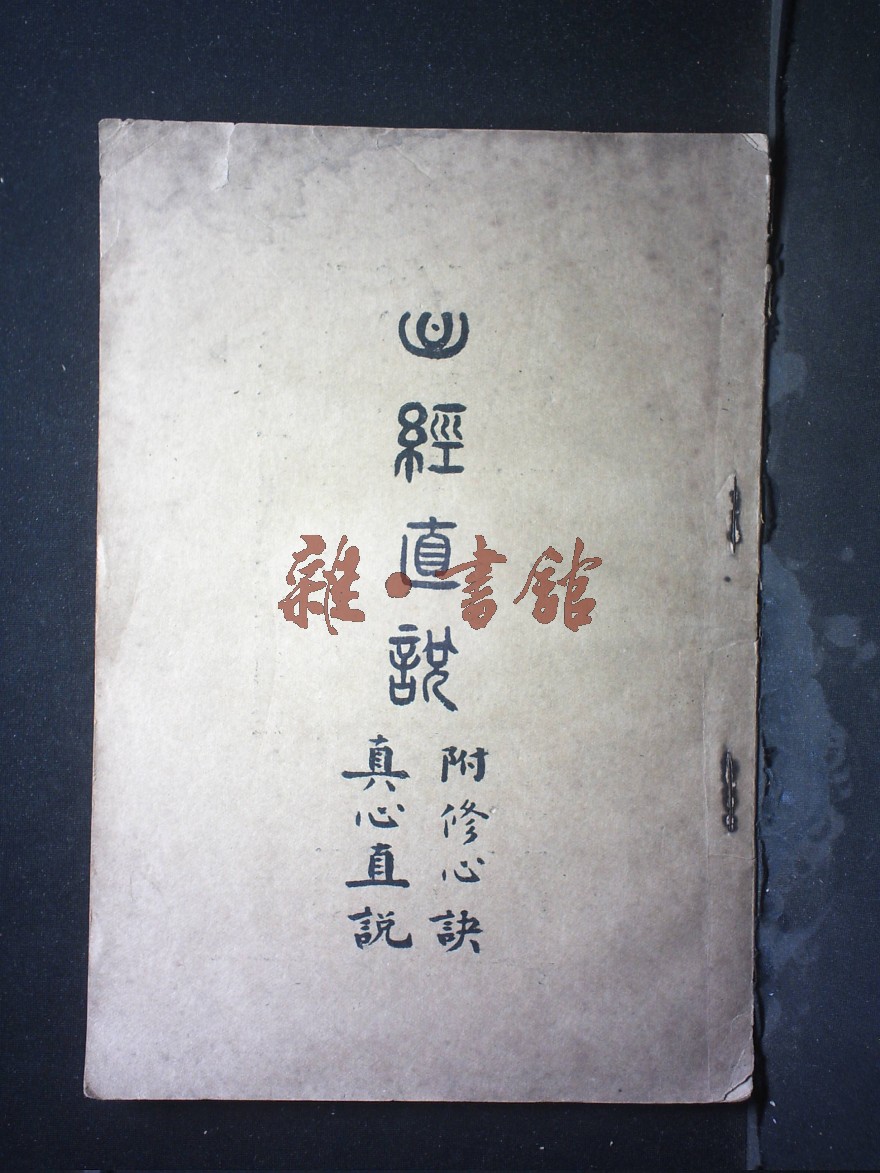 心經直說
附修心訣
真心直説
雜·書館